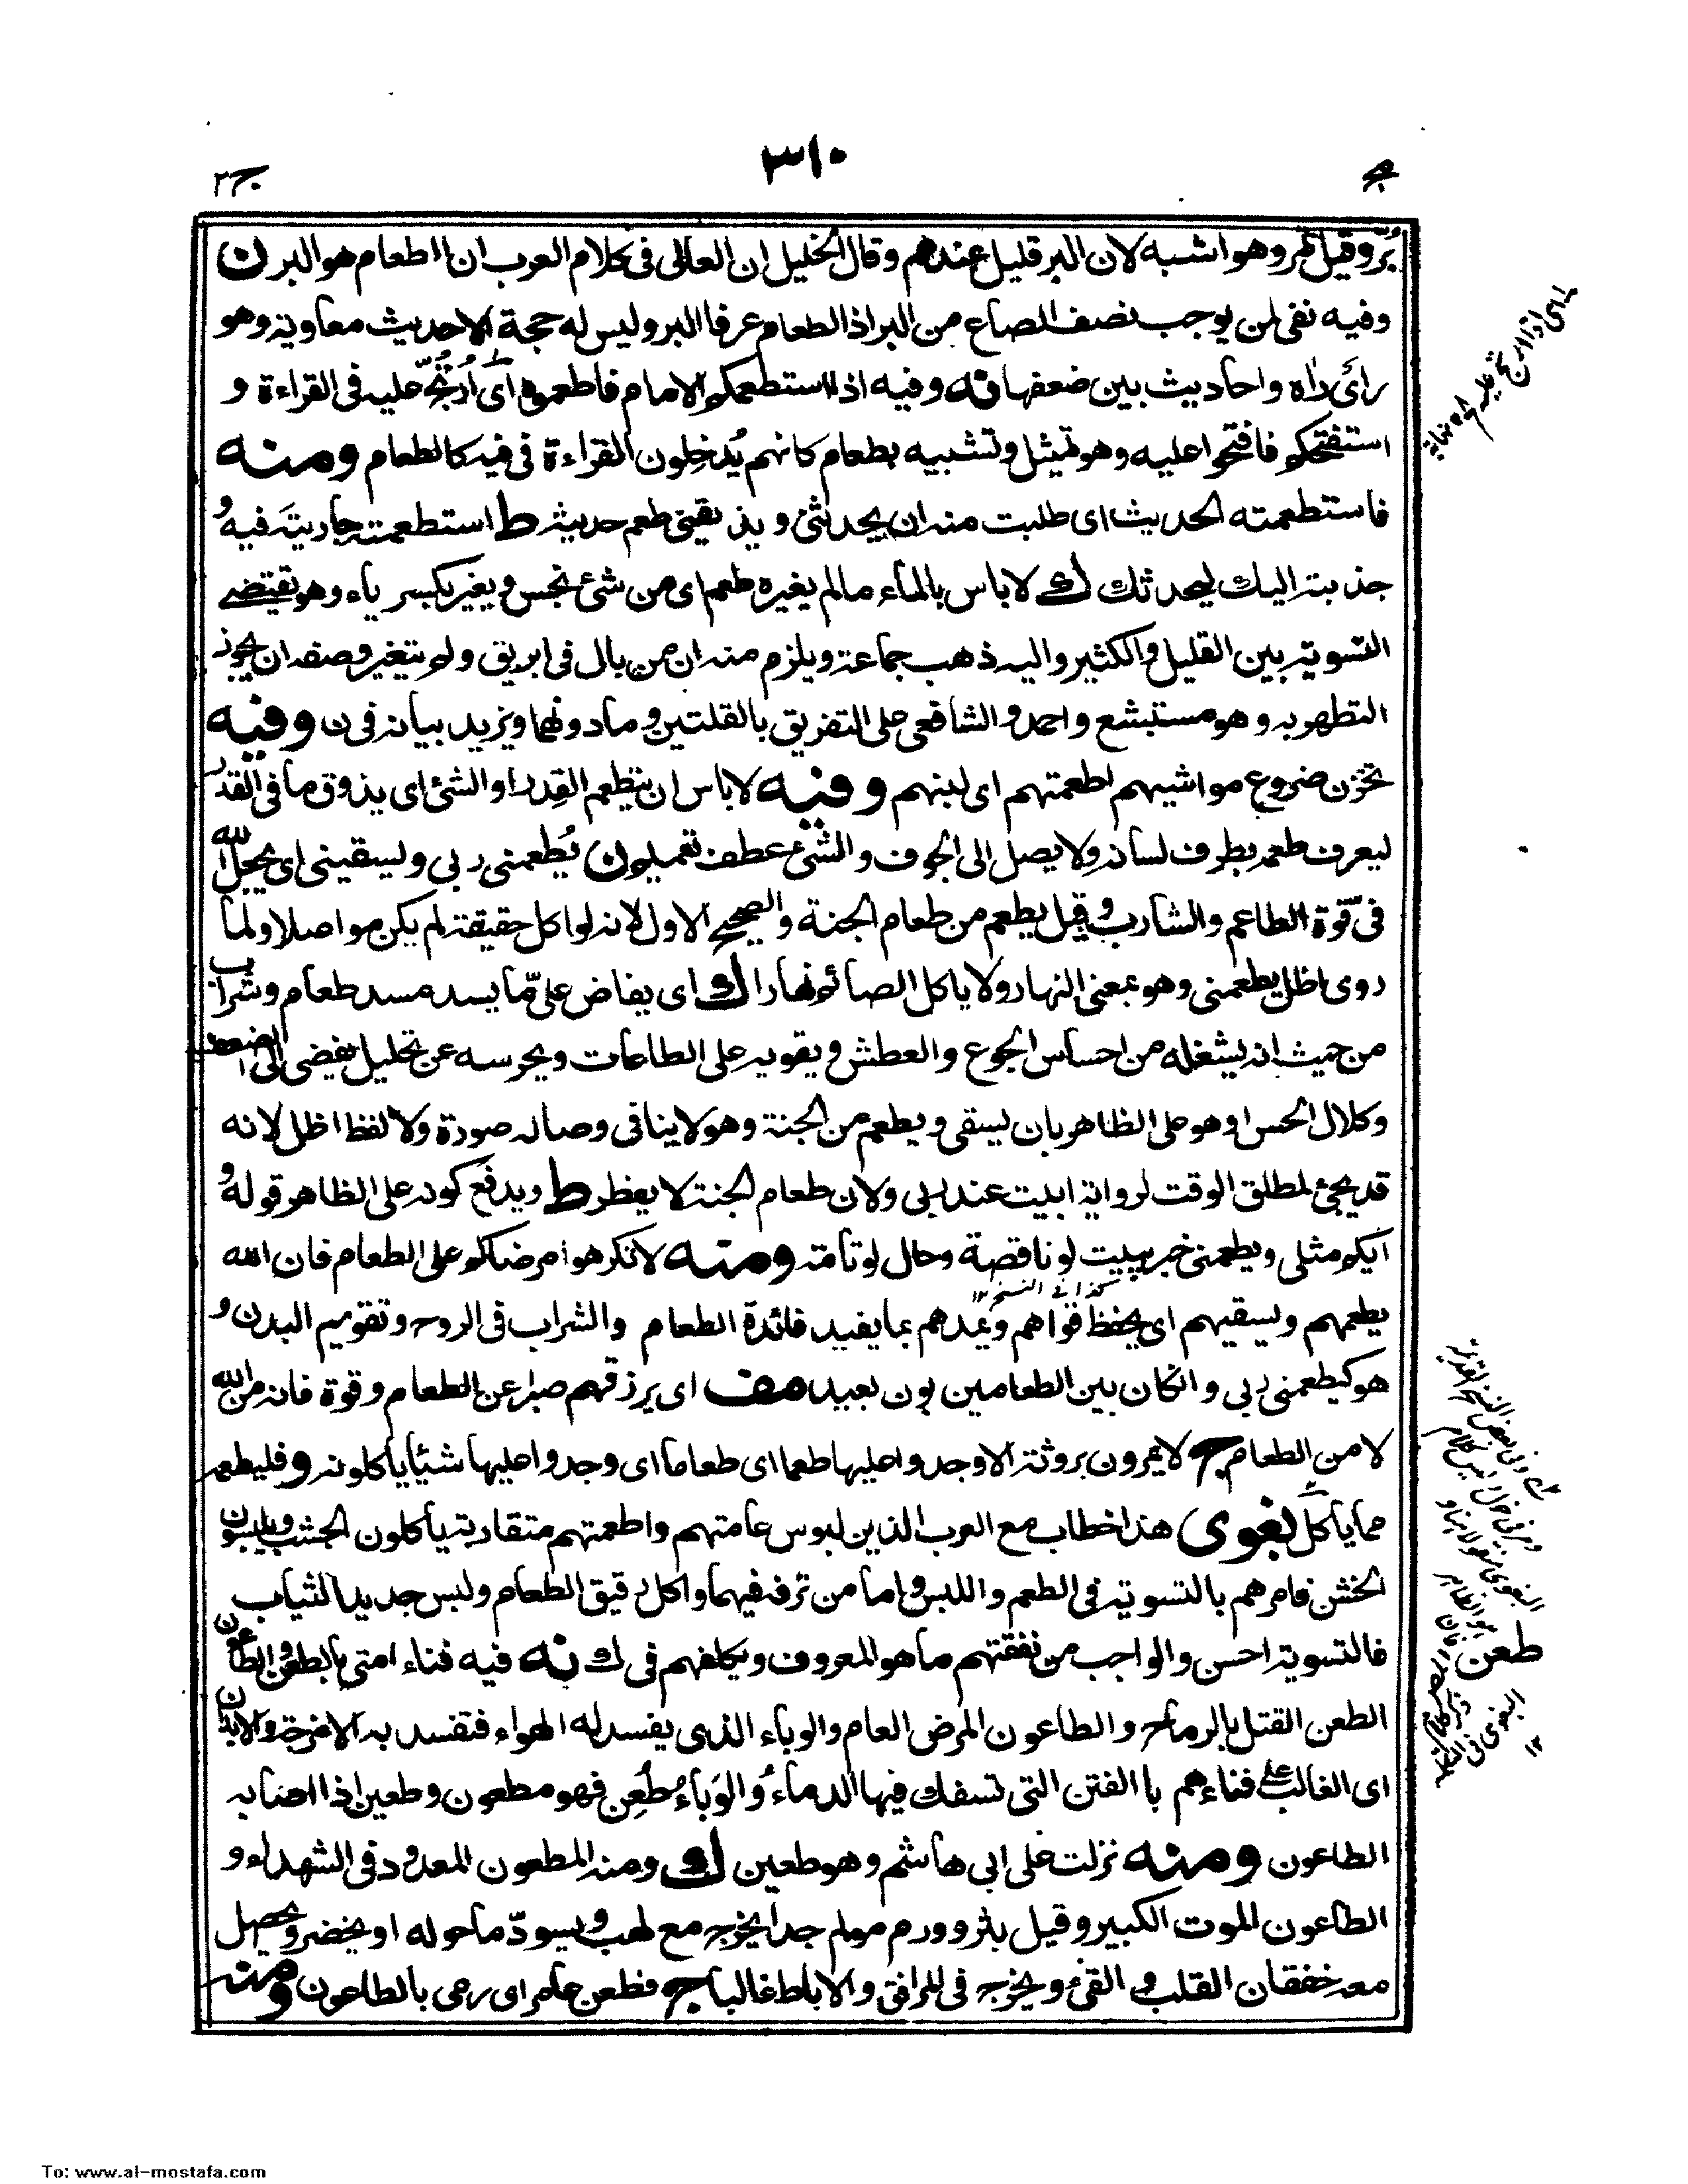 ٣١٠
ج٢
بُرّ وقيل تمر وهو اشبه لان البر قليل عندهم وقال الخليل ان العالى فى كلام العرب ان الطعام هو البر ن
وفيه نفى لمن يوجب نصف الصاع من البر اذ الطعام عرفا البر وليس له حجة الا حديث معاوية وهو
رائ راه واحاديث بين ضعفها نه وفيه اذا استطعمكم الامام فاطعموه اى اُرْتُجّ عليه فى القراءة و
استفتحكم فافتحوا عليه وهو تمثيل وتشبيه بطعام كانهم يُدخِلون القراءة فى فيه كالطعام ومنه
فاستطعمته الحديث اى طلبت منه ان يحدثنى ويذيقنى طعم حديثه ط استطعمته جاريته فيه و
جذبته اليك ليحدثك ك لا باس بالماء ما لم يغيره طعم اى من شئ نجس ويغير بكسر ياء وهو يقتضے
التسوية بين القليل والكثير واليه ذهب جماعة ويلزم منه ان من بال فى ابريق ولم يتغير وصفه ان يجوز
التطهر به وهو مستبشع واحمد والشافعى على التفريق بالقلتين وما دونهما ويزيد بيانه فى ن وفيه
تخزن ضروع مواشيهم اطعمتهم اى لبنهم وفيه لا باس ان يتطعم القِدر او الشئ اى يذوق ما فى القدر
ليعرف طعمه بطرف لسانه ولا يصل الى الجوف والشئ عطف تعميم ن يُطعمنى ربى ويسقينى اى يجعل الله
فىّ قوة الطاعم والشارب وقيل يطعم من طعام الجنة والصحيح الاول لانه لو اكل حقيقة لم يكن مواصلا ولما
روى اظل يطعمنى وهو بمعنى النهار ولا ياكل الصائم نهارا ك اى يفاض علىّ ما يسد مسد طعام وشراب
من حيث انه يشغله من احساس الجوع والعطش ويقويه على الطاعات ويحرسه عن تحليل يفضى الى الضعف
وكلال الحس او هو على الظاهر بان يسقى ويطعم من الجنة وهو لا ينافى وصاله صورة ولا لفظ اظل لانه
قد يجئ لمطلق الوقت لرواية ابيت عند ربى ولان طعام الجنة لا يفطر ط ويدفع كونه على الظاهر قوله و
ايكم مثلى ويطعمنى خبر يبيت لو ناقصة وحال لو تامة ومنه لا تكرهوا مرضاكم على الطعام فان الله
كذا فى النسخ ١٢
يطعمهم ويسقيهم اى يحفظ قواهم ويمدهم بما يفيد فائدة الطعام والشراب فى الروح وتقويم البدن و
هو كيطعمنى ربى وان كان بين الطعامين بون بعيد مف اى يرزقهم صبرا عن الطعام وقوة فانه من الله
لا من الطعام ج لا يمرون بروثة الا وجدوا عليها طعما اى طعاما اى وجدوا عليها شيئا ياكلونه و فليطعمه
مما ياكل بغوى هذا خطاب مع العرب الذين لبوس عامتهم واطعمتهم متقاربة ياكلون الجشب ويلبسون
الخشن فامرهم بالتسوية فى الطعم واللبس واما من ترفه فيهما واكل رقيق الطعام ولبس جديد الثياب
فالتسوية احسن والواجب من نفقتهم ما هو المعروف ويكلفهم فى ك نه فيه فناء امتى بالطعن والطاعون
الطعن القتل بالرماح والطاعون المرض العام والوباء الذى يفسد له الهواء فتفسد به الامزجة والابدان
اى الغالب على فناءهم با الفتن التى تسفك فيها الدماء والوَباءُ طُعِن فهو مطعون وطعين اذا اصابه
الطاعون ومنه نزلت على ابى هاشم وهو طعين ك ومنه المطعون المعدود فى الشهداء و
الطاعون الموت الكبير وقيل بثر وورم مولم جدا يخرج مع لهب ويسودّ ما حوله او يخضر ويحصل
معه خفقان القلب والقئ ويخرج فى المرافق والاباط غالبا ج فطعن عامر اى رمى بالطاعون ومنه
طعن
To: www.al-mostafa.com